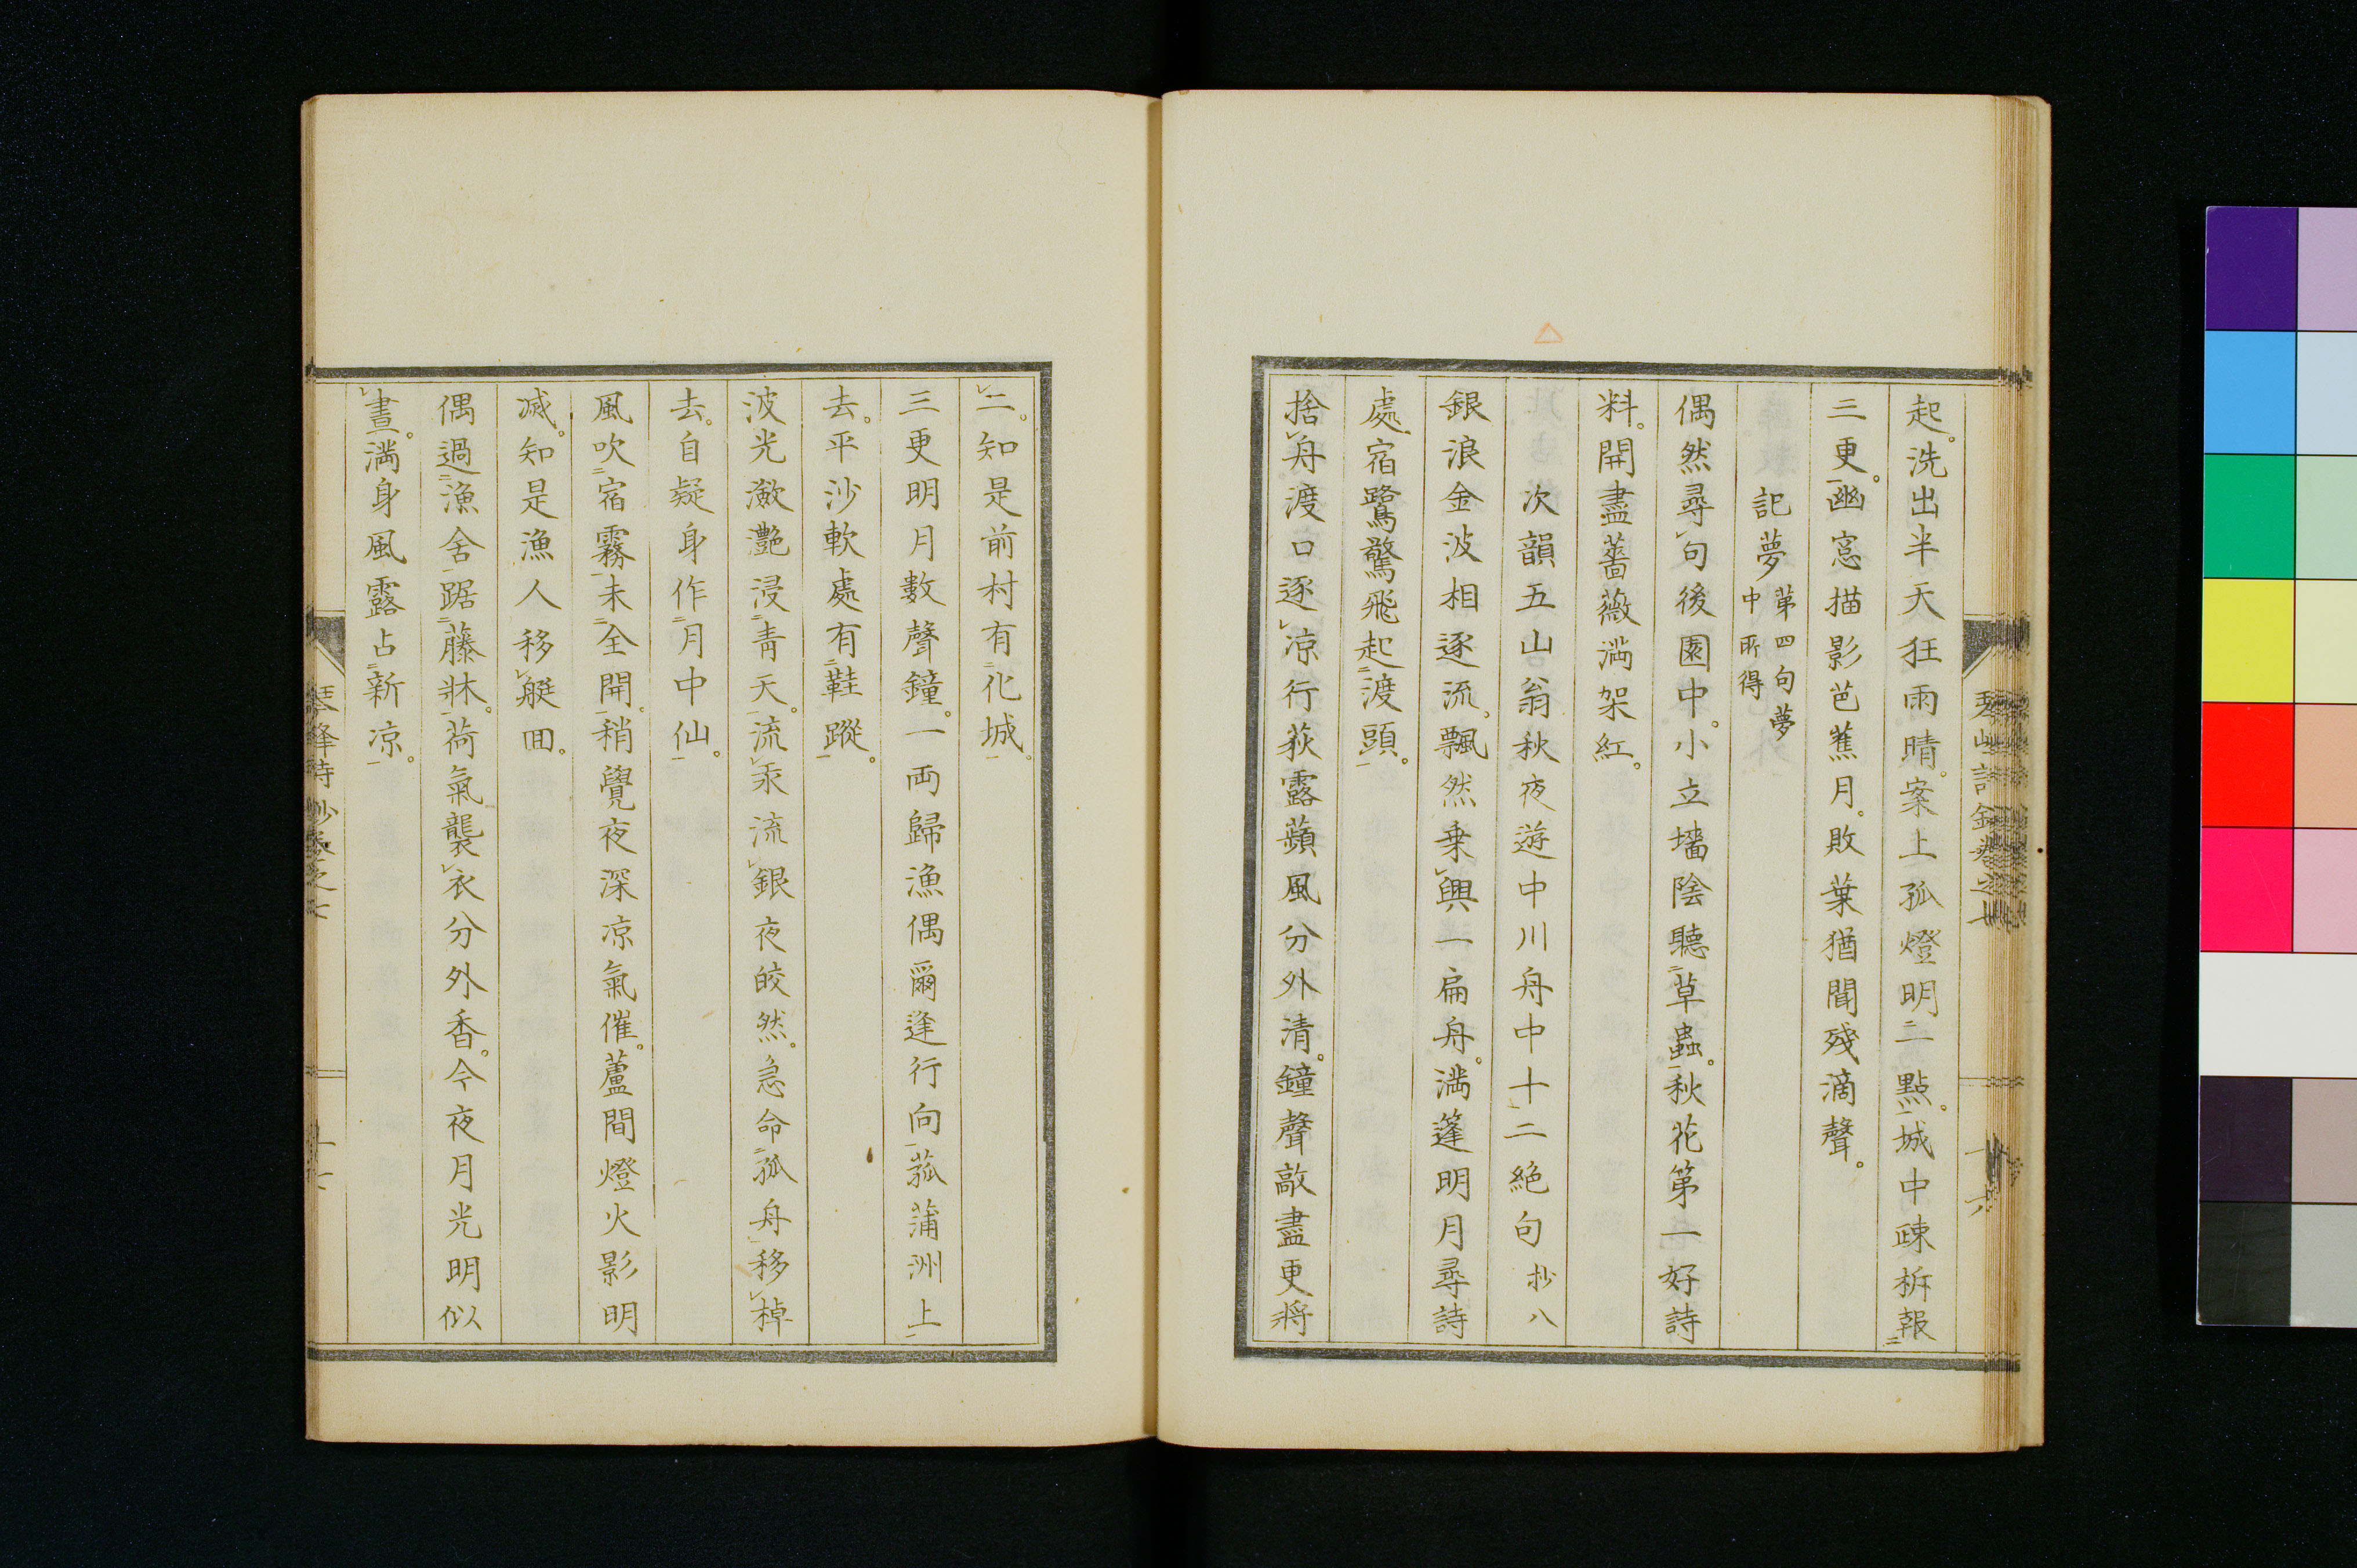 起。洗出半天狂雨晴。案上孤燈明二點。城中疎柝報
三更。幽窓描影芭蕉月。敗葉猶聞殘滴聲。
記夢 第四句夢中所得
偶然尋句後園中。小立墻陰聽草蟲。秋花第一好詩
料。開盡薔薇滿架紅。
次韻五山翁秋夜遊中川舟中十二絶句 抄八
銀浪金波相逐流。飄然乗興一扁舟。滿篷明月尋詩
處。宿鷺驚飛起渡頭。
捨舟渡口逐凉行。荻露蘋風分外清。鐘聲敲盡更將
二。知是前村有化城。
三更明月數聲鐘。一両歸漁偶爾逢。行向菰蒲洲上
去。平沙軟處有鞋蹤。
波光瀲灧浸靑天。流汞流銀夜皎然。急命孤舟移棹
去。自疑身作月中仙。
風吹宿霧未全開。稍覺夜深凉氣催。蘆間燈火影明
滅。知是漁人移艇回。
偶過漁舍踞藤牀。荷氣襲衣分外香。今夜月光明似
晝。滿身風露占新凉。